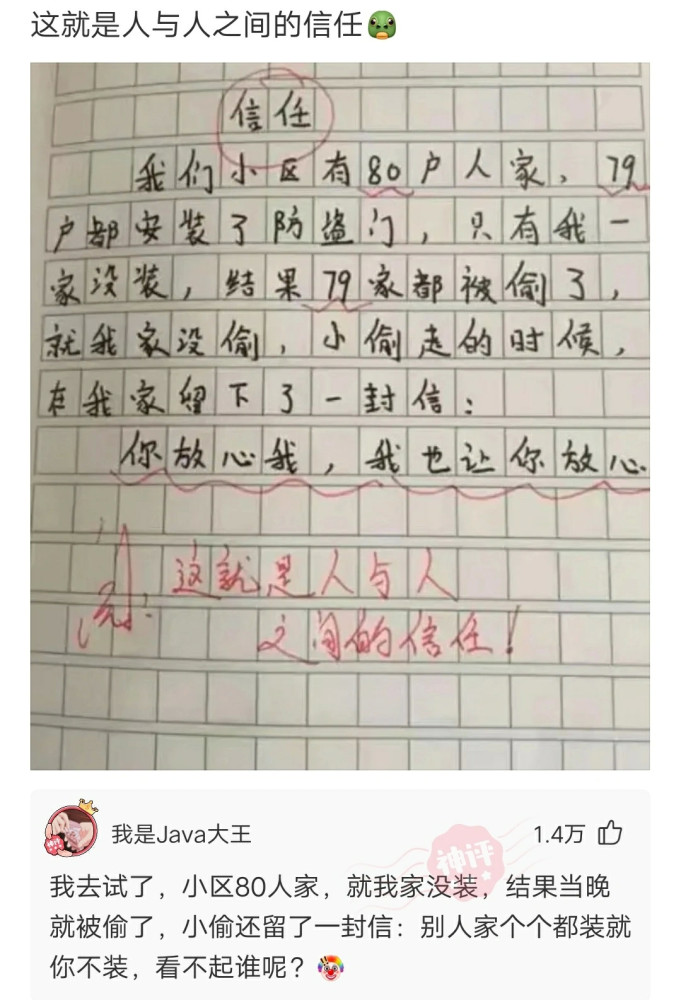 这就是人与人之间的信任
信任
我们小区有80户人家，79
户都安装了防盗门，只有我一
家没装，结果79家都被偷了，
就我家没偷，小偷走的时候，
在我家留下了一封信：
你放心我，我也让你放心
这就是人与人
之间的信任！
我是Java大王
1.4万
神评
我去试了，小区80人家，就我家没装，结果当晚
就被偷了，小偷还留了一封信：别人家个个都装就
你不装，看不起谁呢？